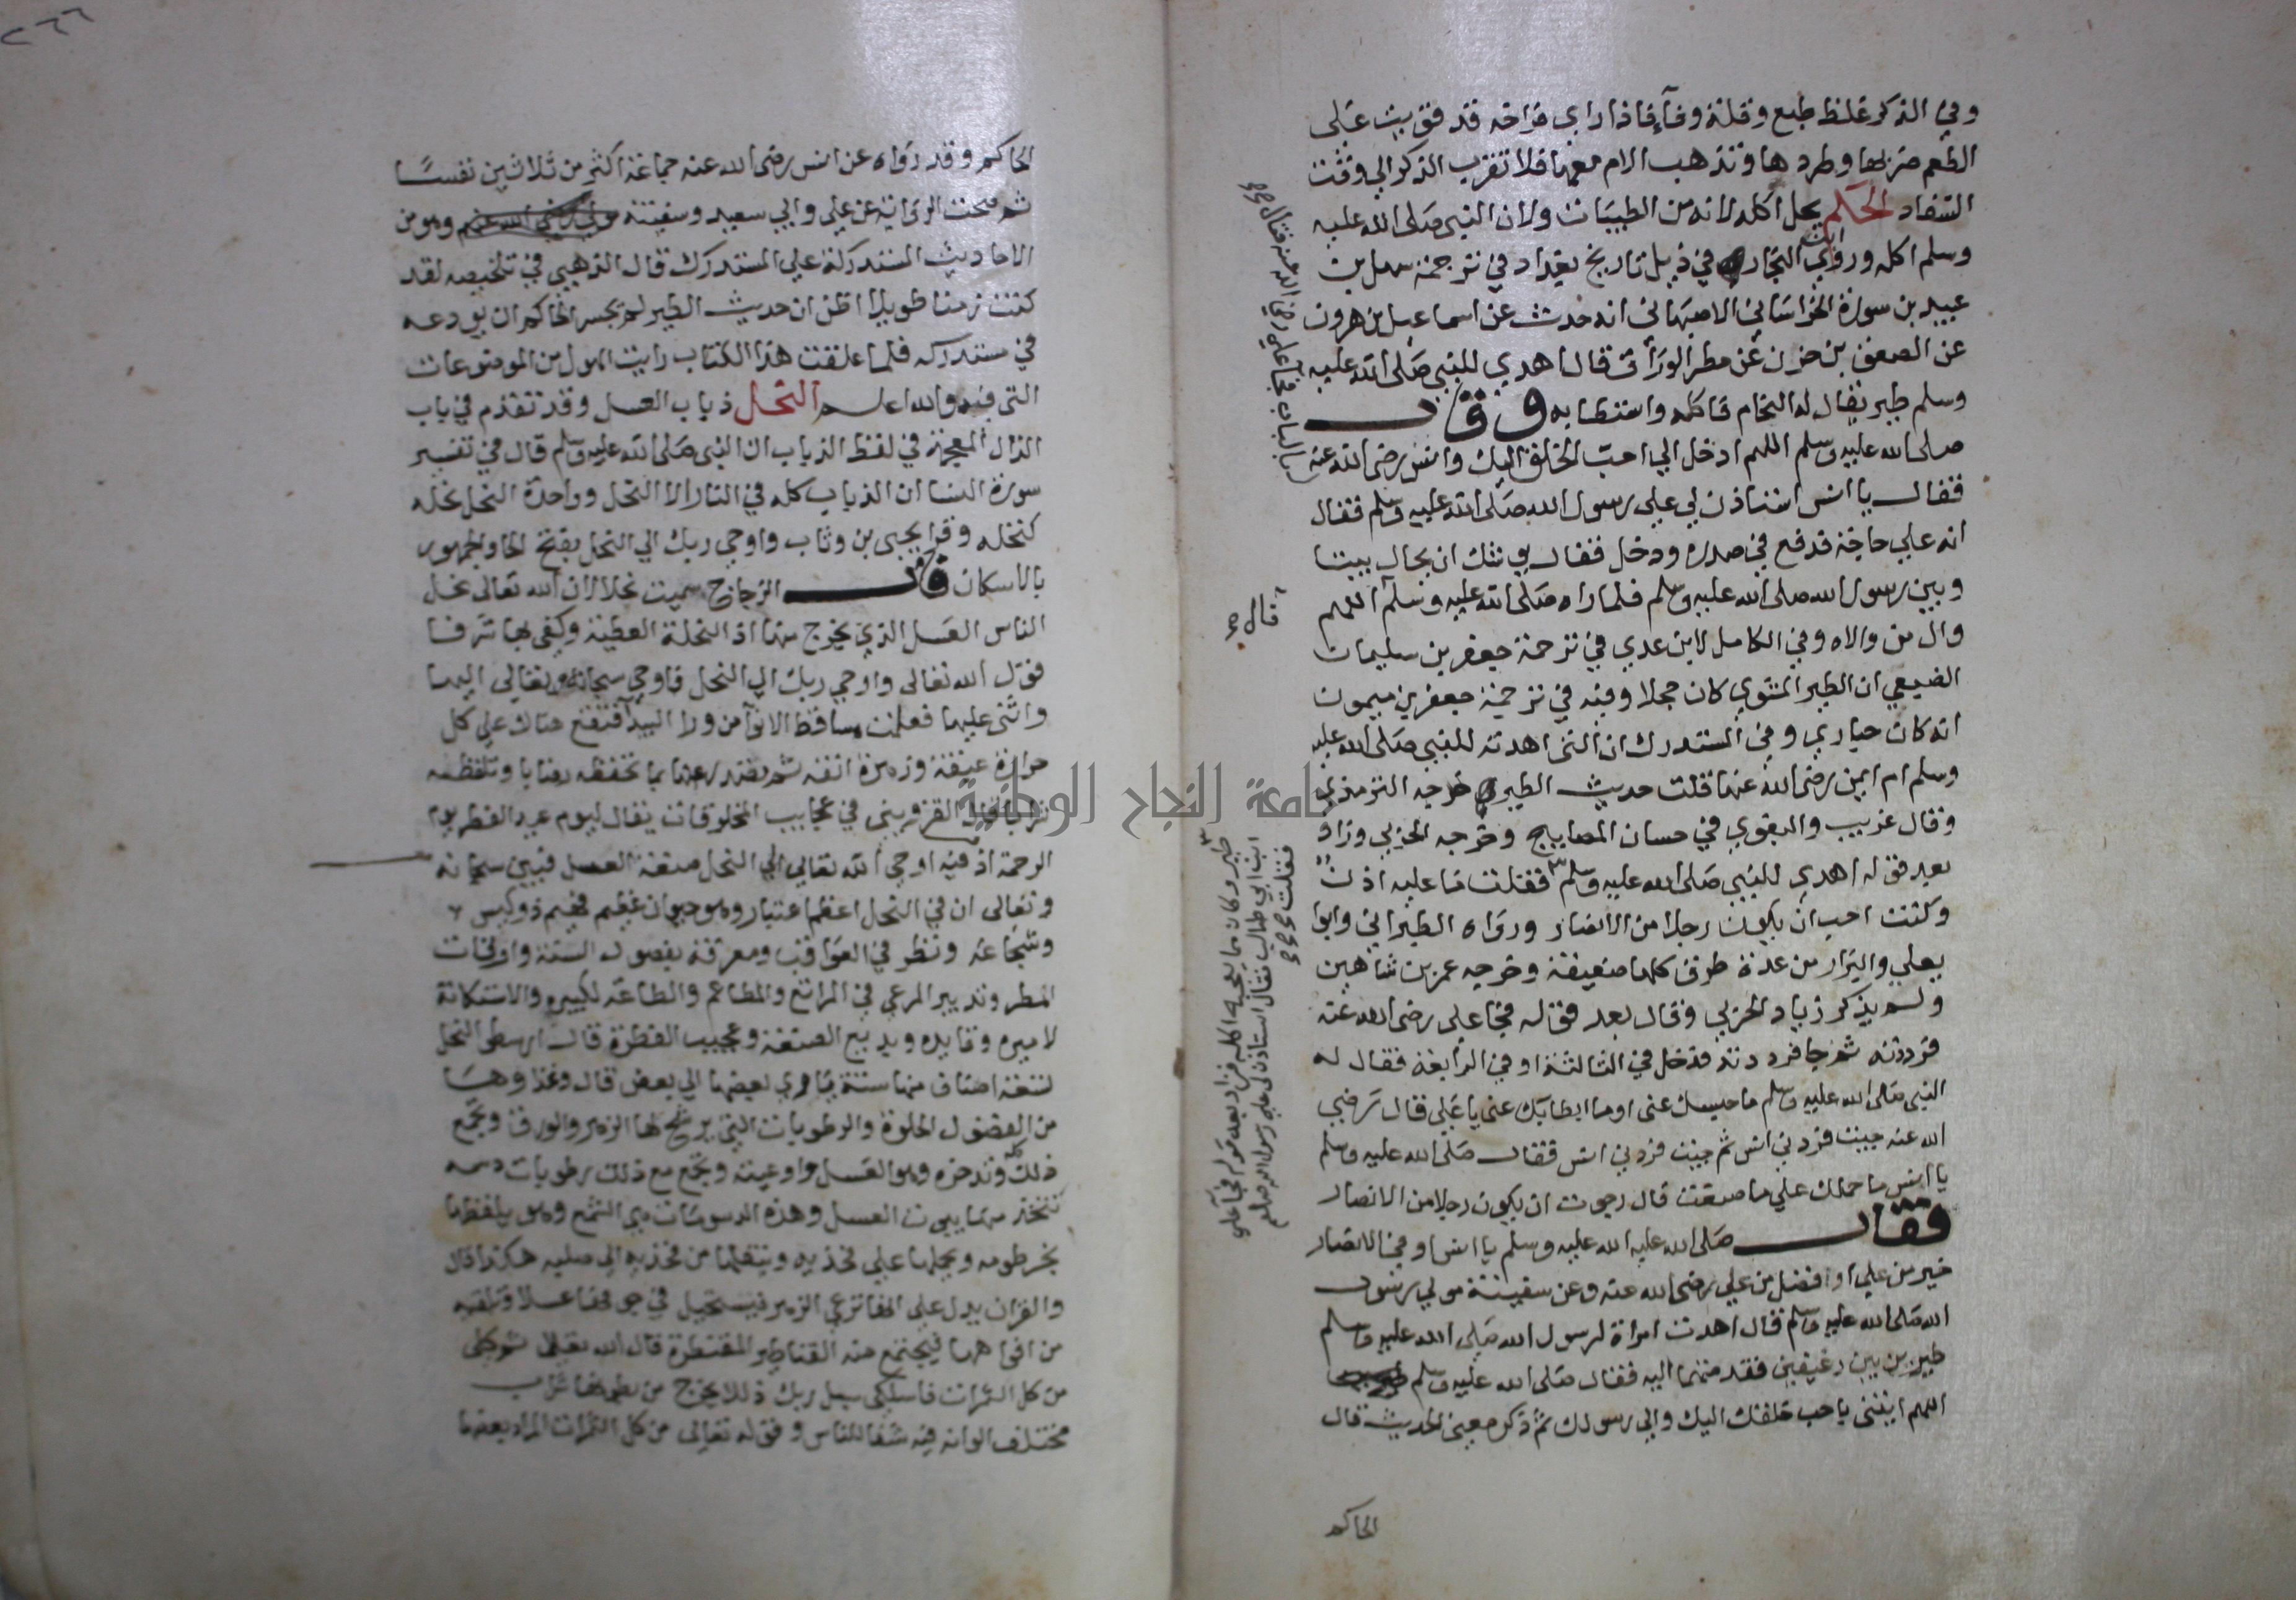 وفي الذكر غلظ طبع وقلة وفآء فاذا راي فراخه قد قويت على
الطعم ضربها وطردها وتذهب الام معها فلا تقرب الذكر الي وقت
السفاد الحكم يحل اكله لانه من الطيبات ولان النبي صلى الله عليه
وسلم اكله وروي ابن النجار في ذيل تاريخ بغداد في ترجمة سهل بن
عبيد بن سورة الخراساني الاصبهاني انه حدث عن اسماعيل بن هرون
عن الصعق بن حزن عن مطر الوراق قال اهدي للنبي صلى الله عليه
وسلم طير يقال له النحام فاكله واستطابه وقال
صلى الله عليه وسلم اللهم ادخل الي احب الخلق اليك وانس رضى الله عنه
بالباب فجاء علي رضي الله عنه فقال صح
فقال يا انس استاذن لي علي رسول الله صلى الله عليه وسلم فقال
انه علي حاجة فدفع في صدره ودخل فقال يوشك ان يحال بيننا
وبين رسول الله صلى الله عليه وسلم فلما راه صلى الله عليه وسلم اللهم
قال صح
وال من والاه وفي الكامل لابن عدي في ترجمة جعفر بن سليمان
الضبعي ان الطير المشوي كان حجلا وفيه في ترجمة جعفر بن ميمون
انه كان حباري وفي المستدرك ان التي اهدته للنبي صلى الله عليه
وسلم ام ايمن رضى الله عنها قلت حديث الطير خرجه الترمذي
وقال غريب والبغوي في حسان المصابيح وخرجه الحربي وزاد
بعد قوله اهدي للنبي صلى الله عليه وسلم فقلت ما عليه اذن
طير وكان مما يعجبه اكله فزاد بعد قوله فجآ علي
ابن ابي طالب فقال استاذن لي علي رسول الله صلعم
فقلت صح
وكنت احب ان يكون رجلا من الانصار ورواه الطبراني وابوا
يعلي والبزار من عدة طرق كلها ضعيفة وخرجه عمر بن شاهين
ولم يذكر زياد الحربي وقال بعد قوله فجا علي رضى الله عنه
فرددته ثم جا فرددته فدخل في الثالثة او في الرابعة فقال له
النبي صلى الله عليه وسلم ما حبسك عني او ما ابطا بك عني يا علي قال رضي
الله عنه جيت فردني انس ثم جيت فردني انس فقال صلى الله عليه وسلم
يا انس ما حملك علي ما صنعت قال رجوت ان يكون رجلا من الانصار
فقال صلى الله عليه الله عليه وسلم يا انس او في الانصار
خير من علي او افضل من علي رضى الله عنه وعن سفينة مولي رسول
الله صلى الله عليه وسلم قال اهدت امراة لرسول الله صلى الله عليه وسلم
طيرين بين رغيفين فقدمتهما اليه فقال صلى الله عليه وسلم
اللهم ايتني باحب خلقك اليك والي رسولك ثم ذكر معني الحديث قال
الحاكم
٢٦٦
الحاكم وقد رواه عن انس رضى الله عنه جماعة اكثر من ثلاثين نفسًا
ثم صحت الرواية عن علي وابي سعيد وسفينة وهو من
الاحاديث المستدركة علي المستدرك قال الذهبي في تلخيصه لقد
كنت زمنا طويلا اظن ان حديث الطير لم يجسر الحاكم ان يودعه
في مستدركه فلما علقت هذا الكتاب رايت الهول من الموضوعات
التي فيه والله اعلم النحل ذباب العسل وقد تقدم في باب
الذال المعجمة في لفظ الذباب ان النبي صلى الله عليه وسلم قال في تفسير
سورة النسا ان الذباب كله في النار الا النحل وواحدة النحل نحله
كنخله وقرا يحيى بن وثاب واوحي ربك الي النحل بفتح الحا والجمهور
بالاسكان قال الزجاج سميت نحلا لان الله تعالى نحل
الناس العسل الذي يخرج منها اذ النحلة العطية وكفى بها شرفا
قول الله تعالى واوحي ربك الي النحل فاوحي سبحانه وتعالى اليها
واثنى عليها فعلمت مساقط الانوآ من ورا البيدآ فتقع هناك علي كل
حرارة عبقة وزهرة انقة ثم تصدر عنها بما تحفظه رضابا وتلفظه
شرابا قال القزويني في عجايب المخلوقات يقال ليوم عيد الفطر يوم
الرحمة اذ فيه اوحي الله تعالى الي النحل صنعة العسل فبين سبحانه
وتعالى ان في النحل اعظم اعتبار وهو حيوان فهيم ذو كيس
وشجاعه ونظر في العواقب ومعرفة بفصول السنة واوقات
المطر وتدبير المرعي في المراتع والمطاعم والطاعة لكبيره والاستكانة
لاميره وقايده وبديع الصنعة وعجيب الفطرة قال ارسطو النحل
تسعة اصناف منها ستة ياوي بعضها الي بعض قال وغذاوها
من الفضول الحلوة والرطوبات التي يرشح بها الزهر والورق ويجمع
ذلك كله وتدخره وهو العسل واوعيته ويجمع مع ذلك رطوبات دسمه
تتخذ منها بيوت العسل وهذه الدسومات هي الشمع وهو يلقطها
بخرطومه ويحملها علي فخذيه وينقلها من فخذيه الى صلبه هكذا قال
والقران يدل علي انها ترعي الزهر فيستحيل في جوفها عسلا وتلقيه
من افواهها فيجتمع منه القناطير المقنطرة قال الله تعالى ثم كلي
من كل الثمرات فاسلكي سبل ربك ذللا يخرج من بطونها شراب
مختلف الوانه فيه شفا للناس وقوله تعالى من كل الثمرات المراد بعضها
جامعة النجاح الوطنية